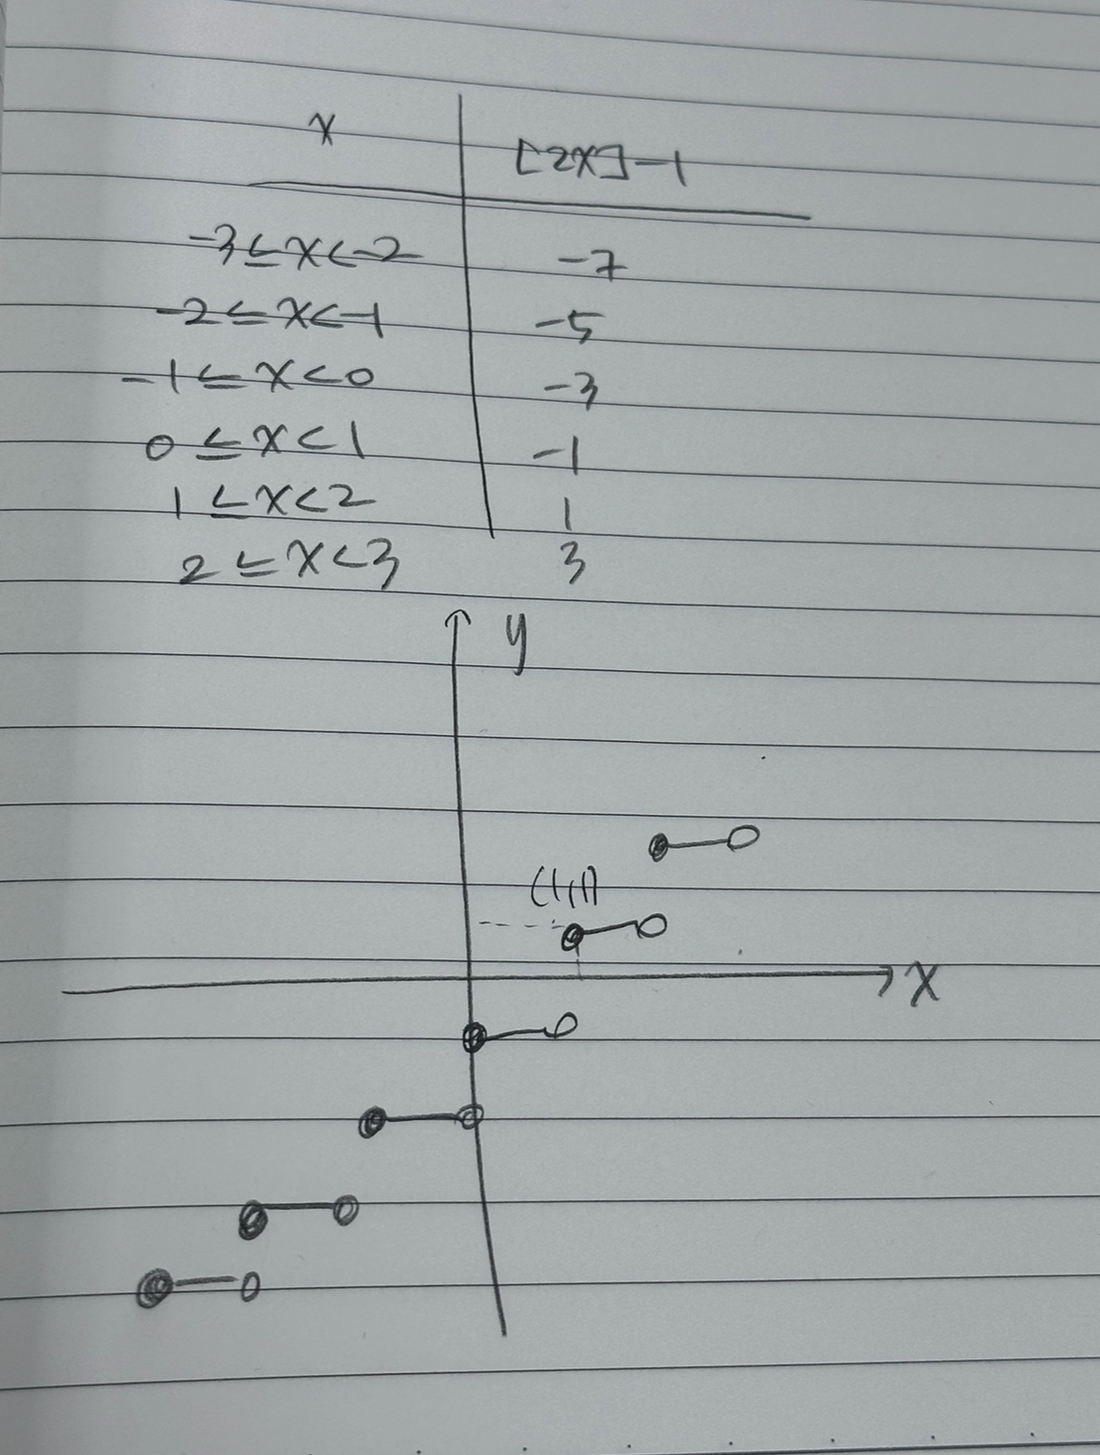 x [2x]-1
-3≤x<-2 -7
-2≤x<-1 -5
-1≤x<0 -3
0≤x<1 -1
1≤x<2 1
2≤x<3 3
y
(1,1)
x